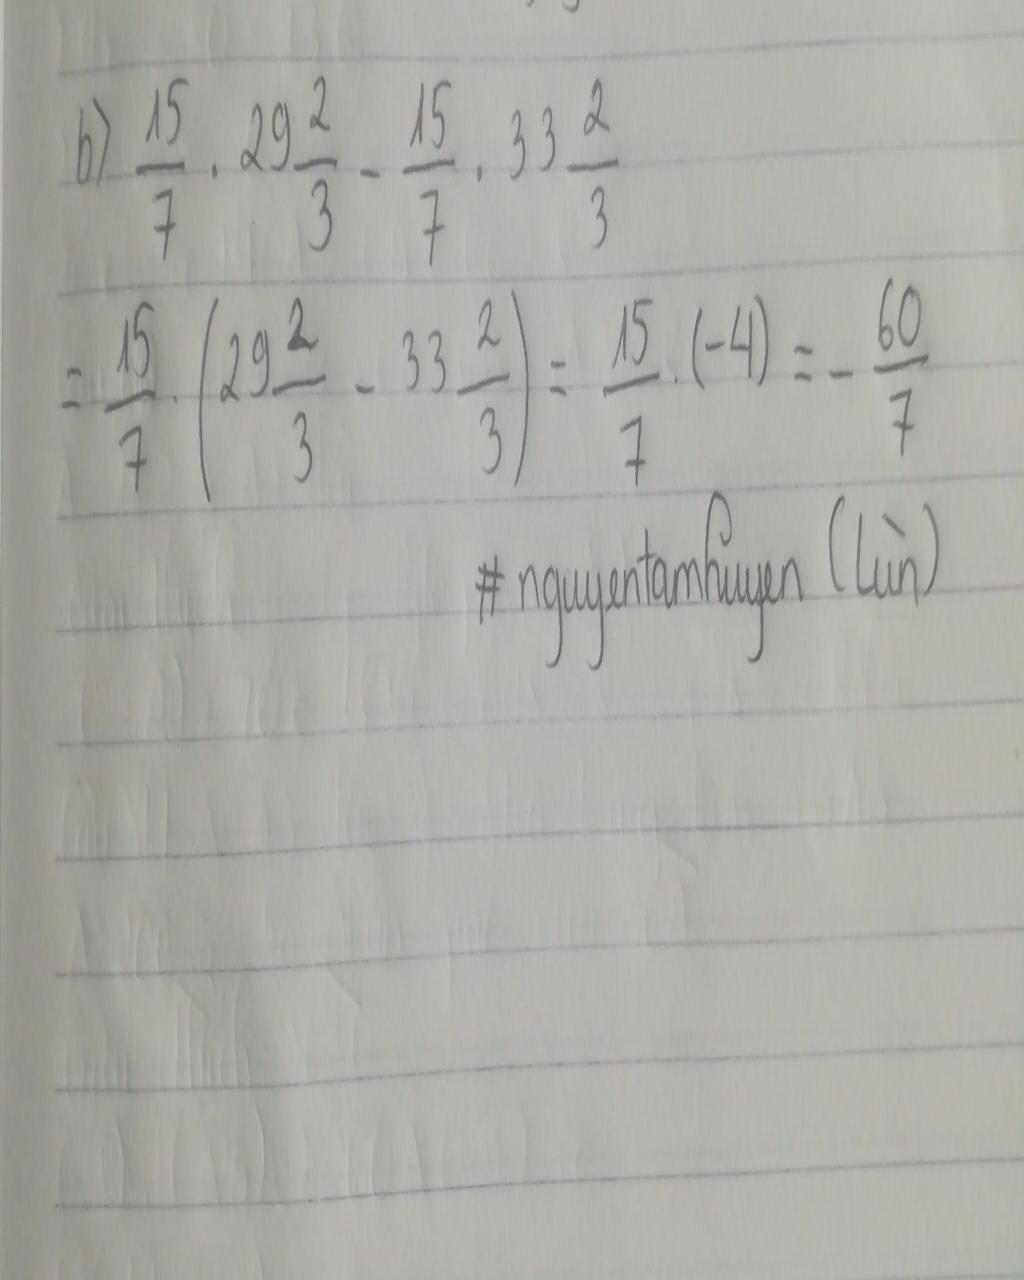 b) 15/7 . 29 2/3 - 15/7 . 33 2/3
= 15/7 . (29 2/3 - 33 2/3) = 15/7 . (-4) = - 60/7
#nguyentamhuyen (Lùn)